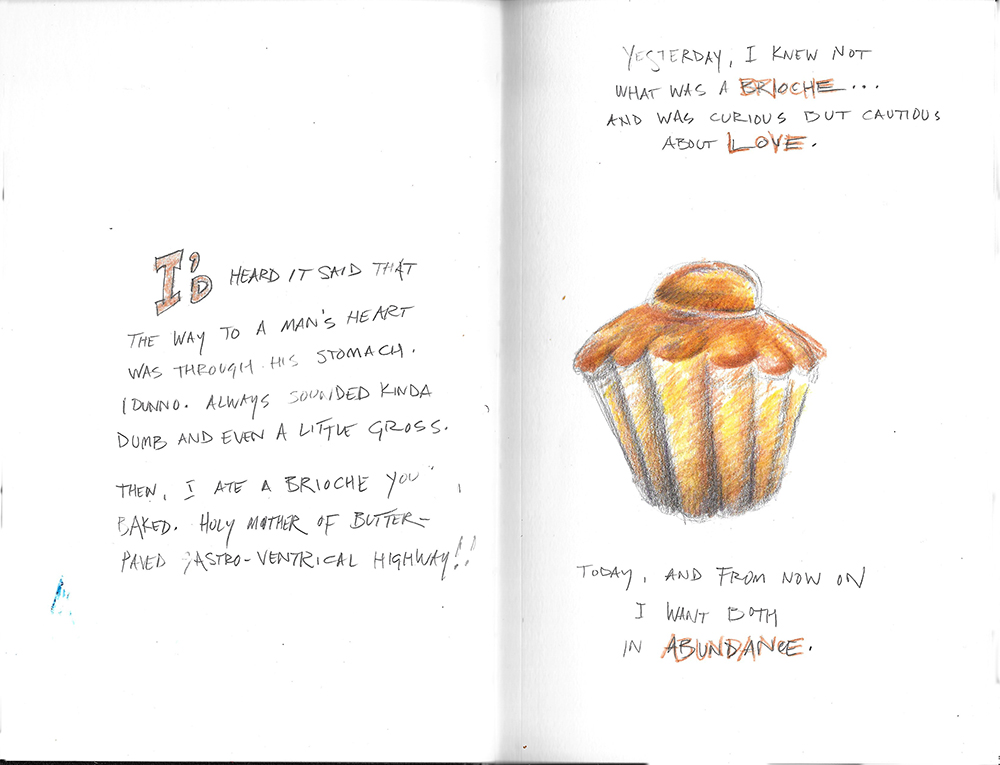 I'D HEARD IT SAID THAT
THE WAY TO A MAN'S HEART
WAS THROUGH HIS STOMACH.
I DUNNO. ALWAYS SOUNDED KINDA
DUMB AND EVEN A LITTLE GROSS.
THEN, I ATE A BRIOCHE YOU
BAKED. HOLY MOTHER OF BUTTER-
PAVED GASTRO-VENTRICAL HIGHWAY!!
YESTERDAY, I KNEW NOT
WHAT WAS A BRIOCHE...
AND WAS CURIOUS BUT CAUTIOUS
ABOUT LOVE.
TODAY, AND FROM NOW ON
I WANT BOTH
IN ABUNDANCE.